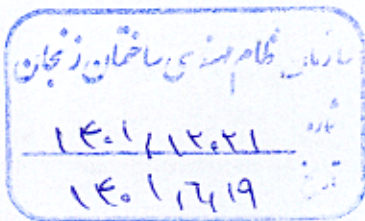 سازمان نظام مهندسی ساختمان زنجان
شماره ۱۴۰۱/۱۲۰۲۱
تاریخ ۱۴۰۱/۶/۱۹